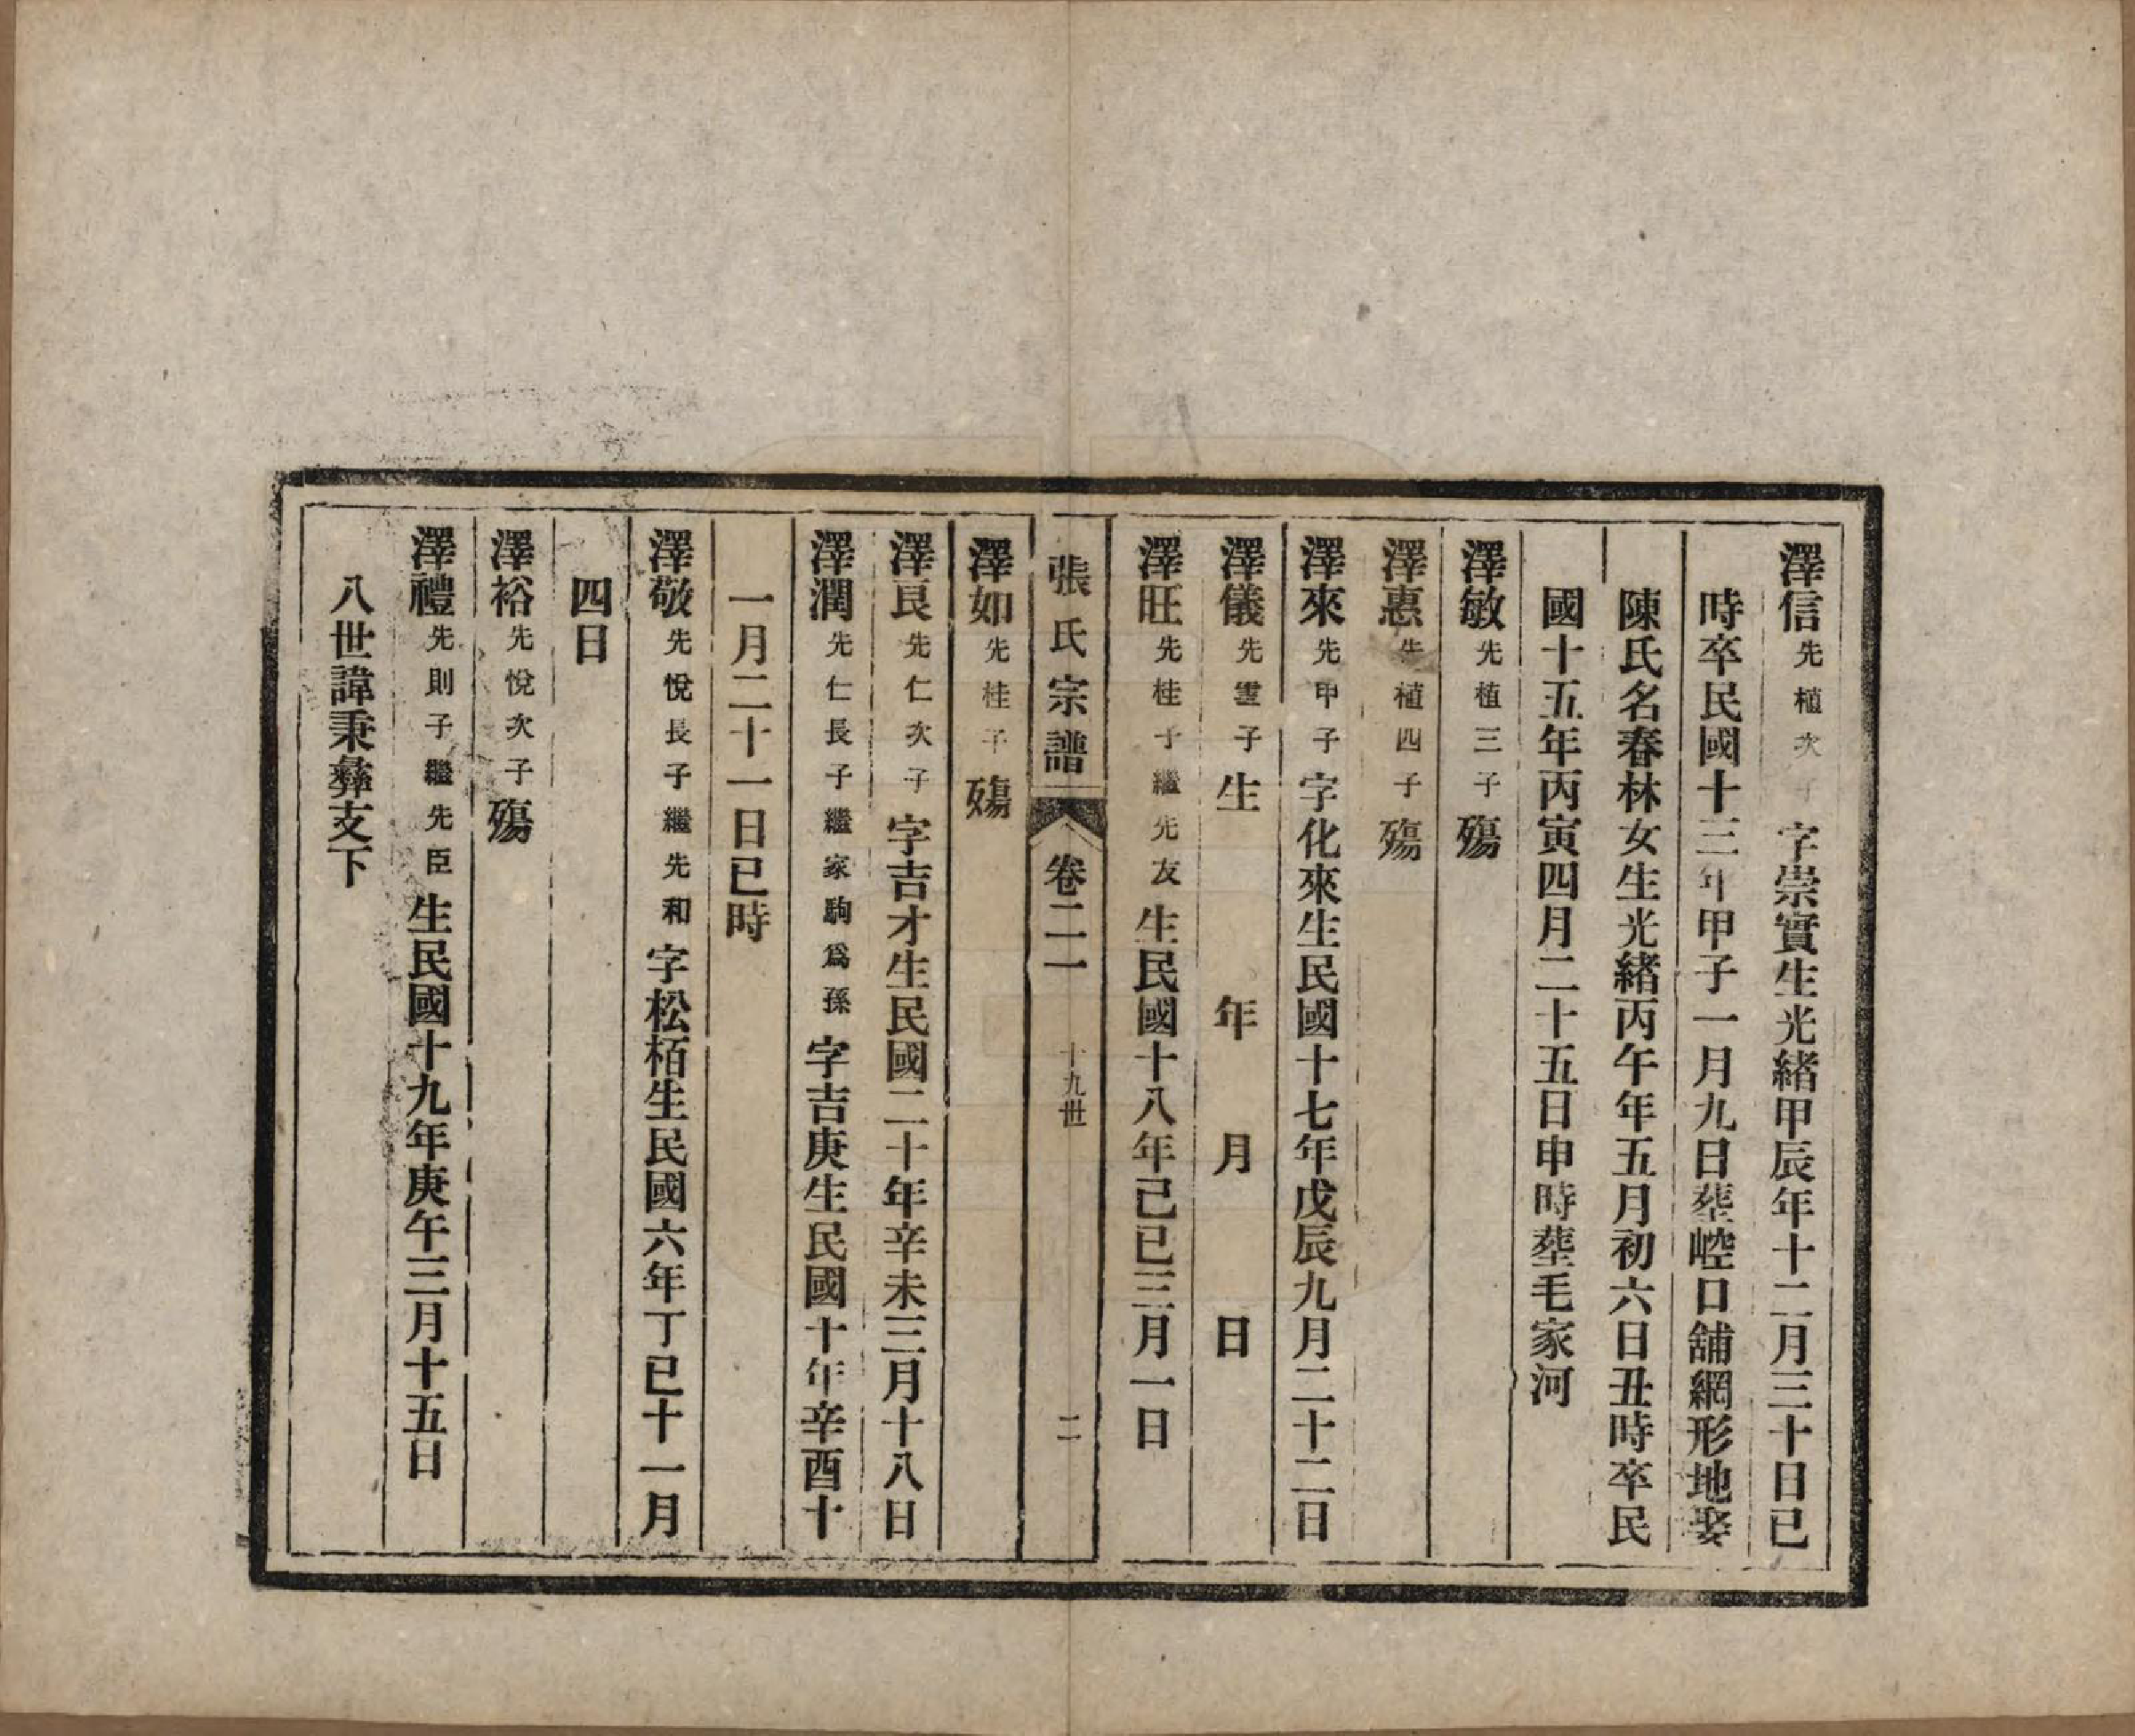 澤信先植次子字崇實生光緒甲辰年十二月三十日巳
時卒民國十三年甲子一月九日塟崆口舖網形地娶
陳氏名春林女生光緒丙午年五月初六日丑時卒民
國十五年丙寅四月二十五日申時塟毛家河
澤敏先植三子殤
澤惠先植四子殤
澤來先甲子字化來生民國十七年戊辰九月二十二日
澤儀先雲子生 年 月 日
澤旺先桂子繼先友生民國十八年己巳三月一日
張氏宗譜 卷二一 十九世 二
澤如先桂子殤
澤良先仁次子字吉才生民國二十年辛未三月十八日
澤潤先仁長子繼家駒爲孫字吉庚生民國十年辛酉十
一月二十一日巳時
澤敬先悅長子繼先和字松栢生民國六年丁巳十一月
四日
澤裕先悅次子殤
澤禮先則子繼先臣生民國十九年庚午三月十五日
八世諱秉彝支下